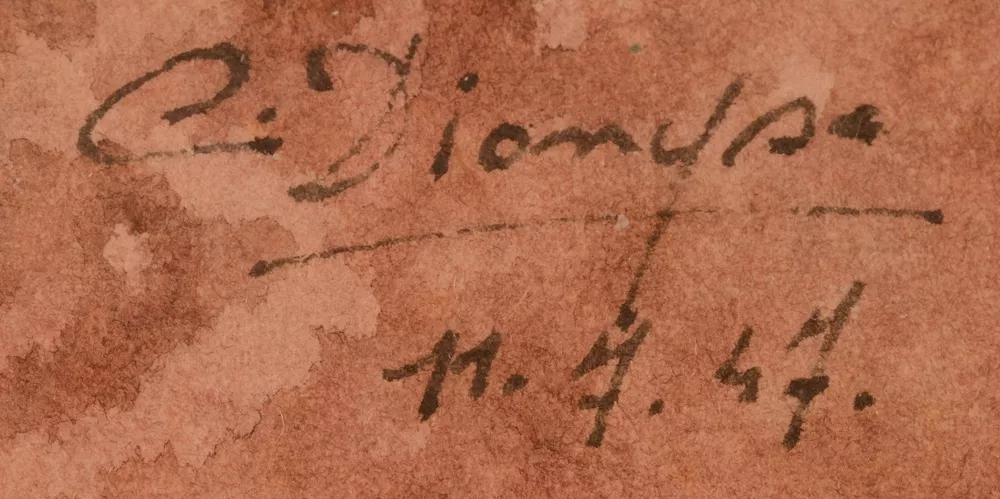 C. Dionyse
11. 7. 47.